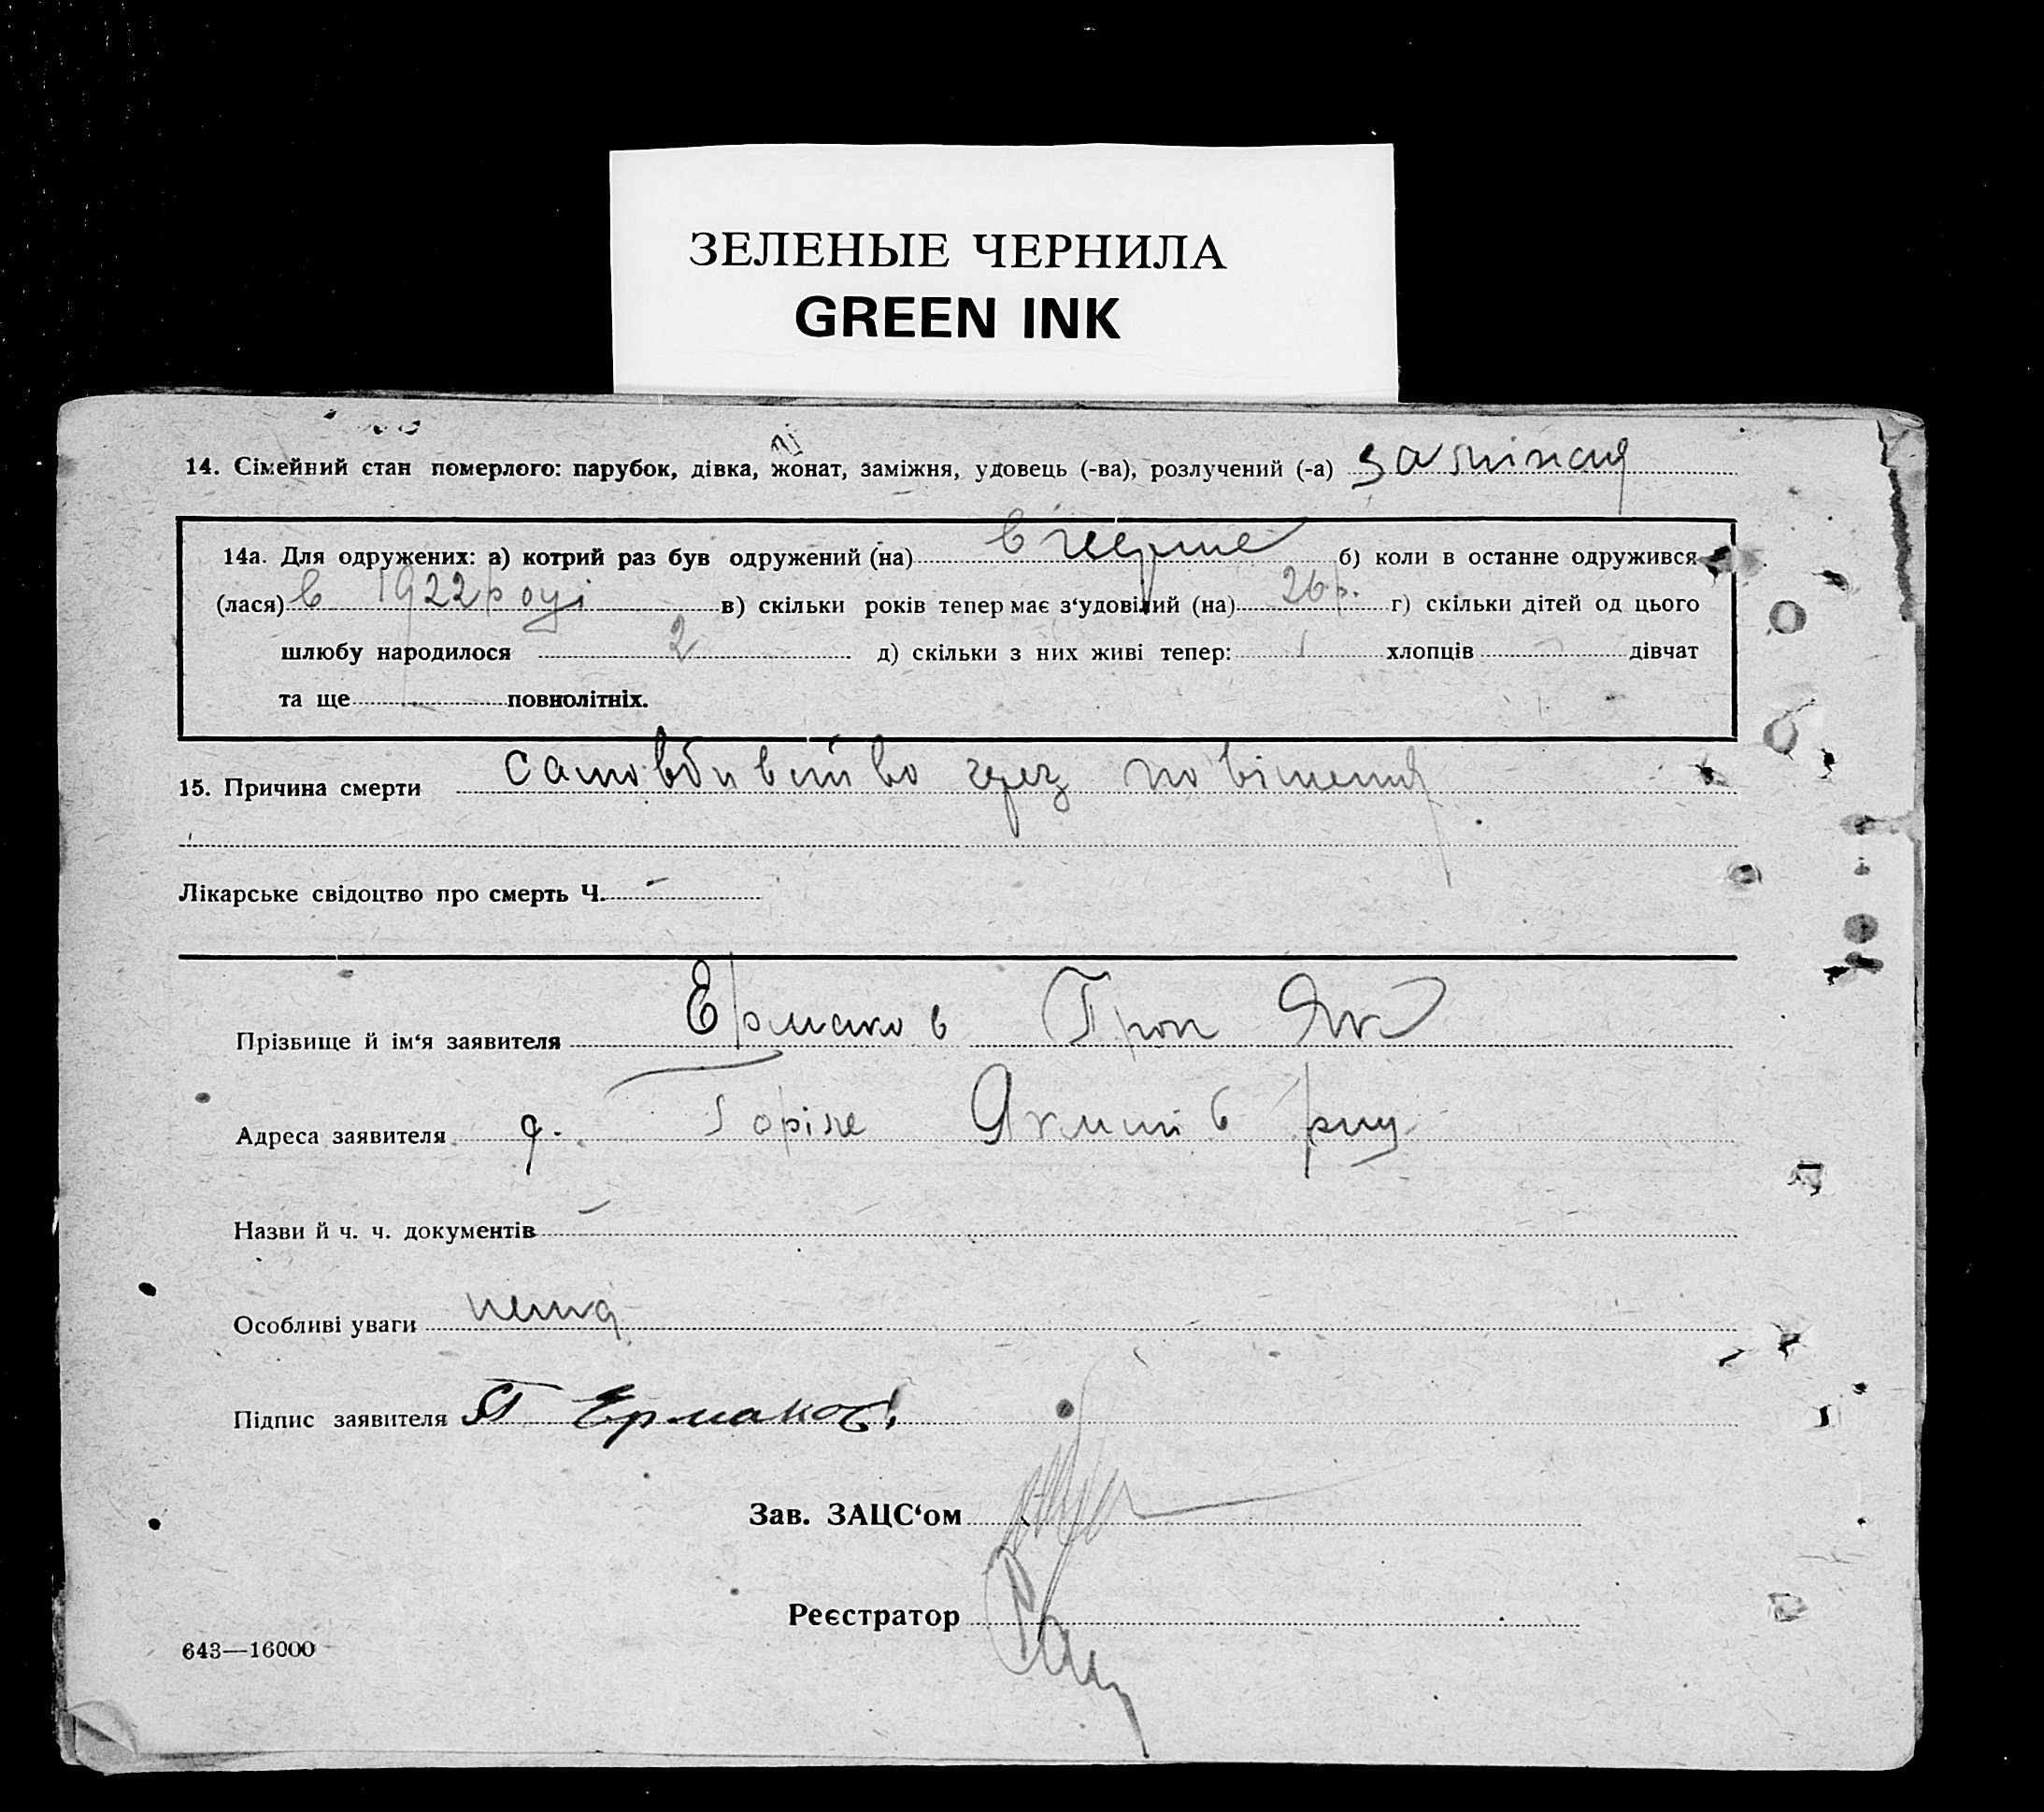 ЗЕЛЕНЫЕ ЧЕРНИЛА
GREEN INK
14. Сімейний стан померлого: парубок, дівка, жонат, заміжня, удовець (-ва), розлучений (-а) заміжня
14а. Для одружених: а) котрий раз був одружений (на) вперше б) коли в останне одружився
(лася) в 1922 році в) скільки років тепер має з‘удовілий (на) 26 р. г) скільки дітей од цього
шлюбу народилося 2 д) скільки з них живі тепер: 1 хлопців - дівчат
та ще повнолітніх.
15. Причина смерти самовбивство через повішення
Лікарське свідоцтво про смерть Ч. -
Прізвище й ім‘я заявителя Ермаков Як
Адреса заявителя
Назви й ч. ч. документів -
Особливі уваги нема
Підпис заявителя Ермаков
Зав. ЗАЦС‘ом
Реєстратор
643—16000